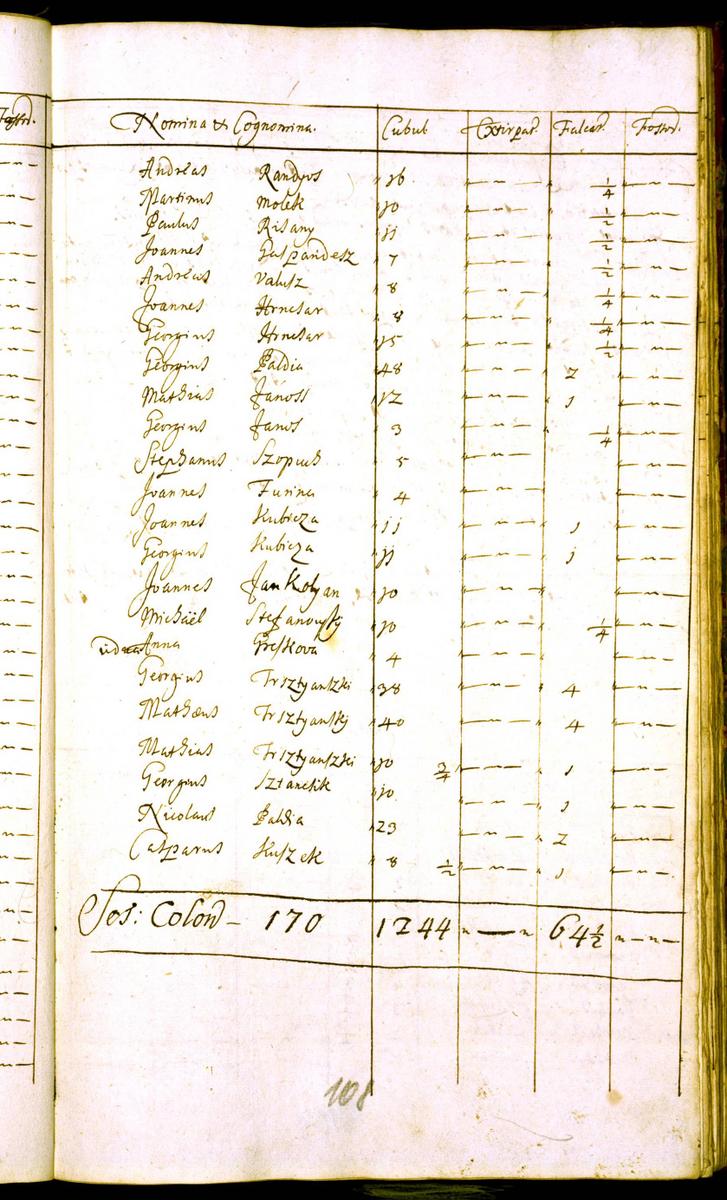 Nomina et Cognomina. Cubul Extirpat. Falcat. Fossor.
Andreas Randyos 16 " — " — " ¼ " — " —
Martinus Molek 10 " — " — ½ " — " —
Paulus Risany 11 " — " — ½ " — " —
Joannes Gaspandesz 7 " — " — " ½ " — " —
Andreas Valusz 8 " — " — " ¼ " — " —
Joannes Hrnesar 8 " — " — " ¼ " — " —
Georgius Hrnesar 15 " — " — ½ " — " —
Georgius Baldia 48 " — " — 2 " — " —
Mathias Janoss 12 " — " — " 1 " — " —
Georgius Janos 3 " — " — " ¼ " — " —
Stephanus Szopuch 5 " — " — " — " —
Joannes Furina 4 " — " — " " — " —
Joannes Kubicza 11 " — " — " 1 " — " —
Georgius Kubicza 11 " — " — " 1 " — " —
Joannes Jankolyan 10 " — " — " " — " —
Michaël Stefanovsky 10 " — " — ¼ " — " —
vidua Anna Greskova 4 " — " — " " — " —
Georgius Trsztyanszki 38 " — " — " 4 " — " —
Mathæus Trsztyansky 40 " — " — " 4 " — " —
Mathias Trsztyanszki 10 ¾ " — " — " 1 " — " —
Georgius Sztancsik 10 " — " — " 1 " — " —
Nicolaus Baldia 23 " — " — " 2 " — " —
Casparus Kuszek 8 ½ " — " — " 1 " — " —
Sos: Colon — 170 1244 " — " 64½ " — " —
108